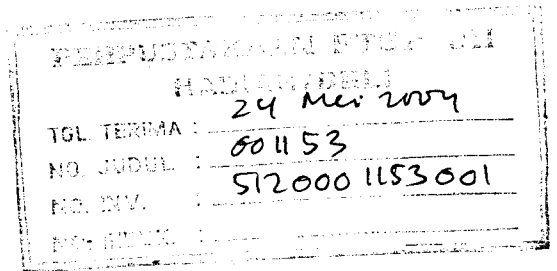 PERPUSTAKAAN FTSP UII
HADIAH/BELI
TGL. TERIMA : 24 Mei 2004
NO. JUDUL : 001153
NO. INV. : 512000 1153001
NO. INDUK. :